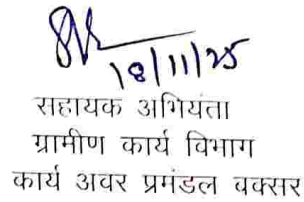 18/11/25
सहायक अभियंता
ग्रामीण कार्य विभाग
कार्य अवर प्रमंडल बक्सर